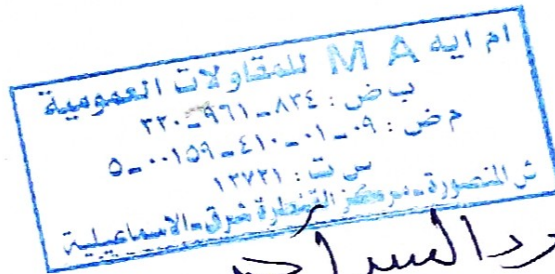 ام ايه M A للمقاولات العمومية
ب ض : ٨٣٤-٩٦١-٣٢٠
م ض : ٠٩-٠١-٤١٠-٠٠١٥٩-٥
س ت : ١٢٧٢١
ش المنصورة - مركز القنطرة شرق - الاسماعيلية